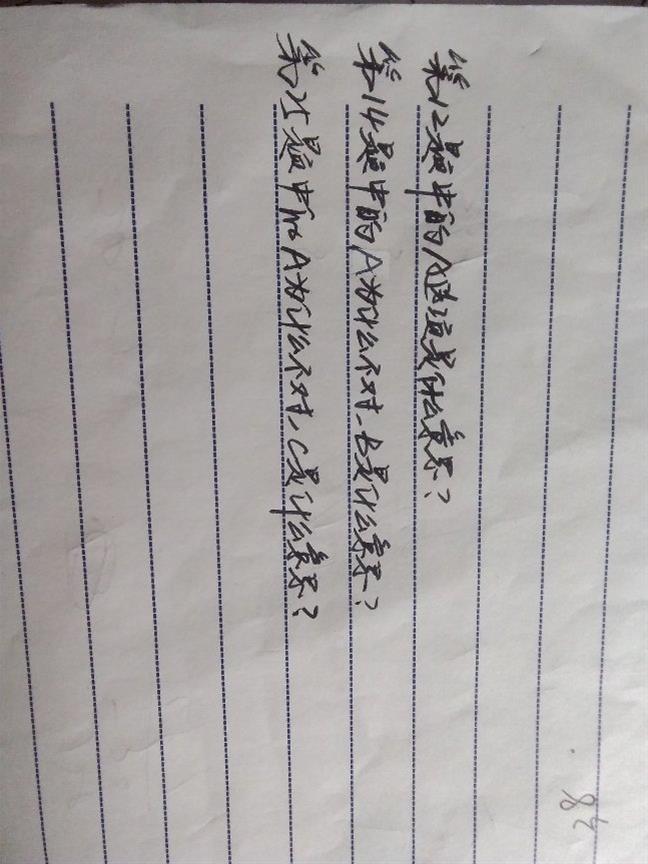 第12题中的A选项是什么意思?
第14题中的A为什么不对,B是什么意思?
第25题中的A为什么不对,C是什么意思?
38